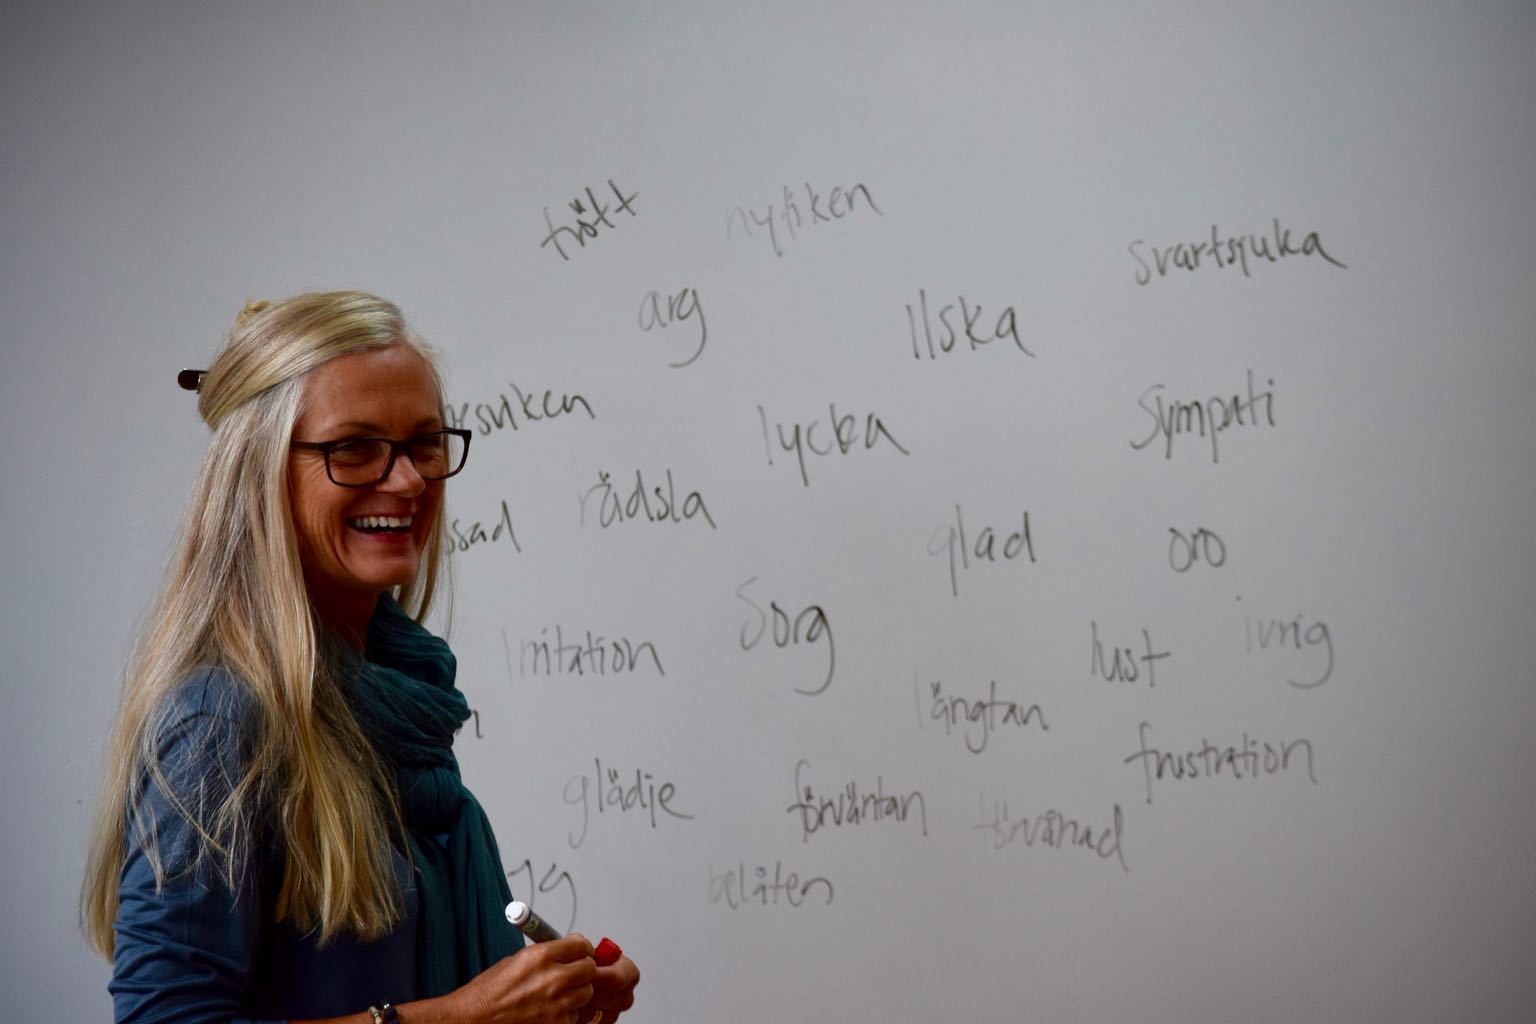 trött
nyfiken
svartsjuka
arg
Ilska
sviken
lycka
sympati
rädsla
ssad
glad
oro
Irritation
Sorg
lust
ivrig
längtan
frustration
glädje
förväntan
förvånad
belåten